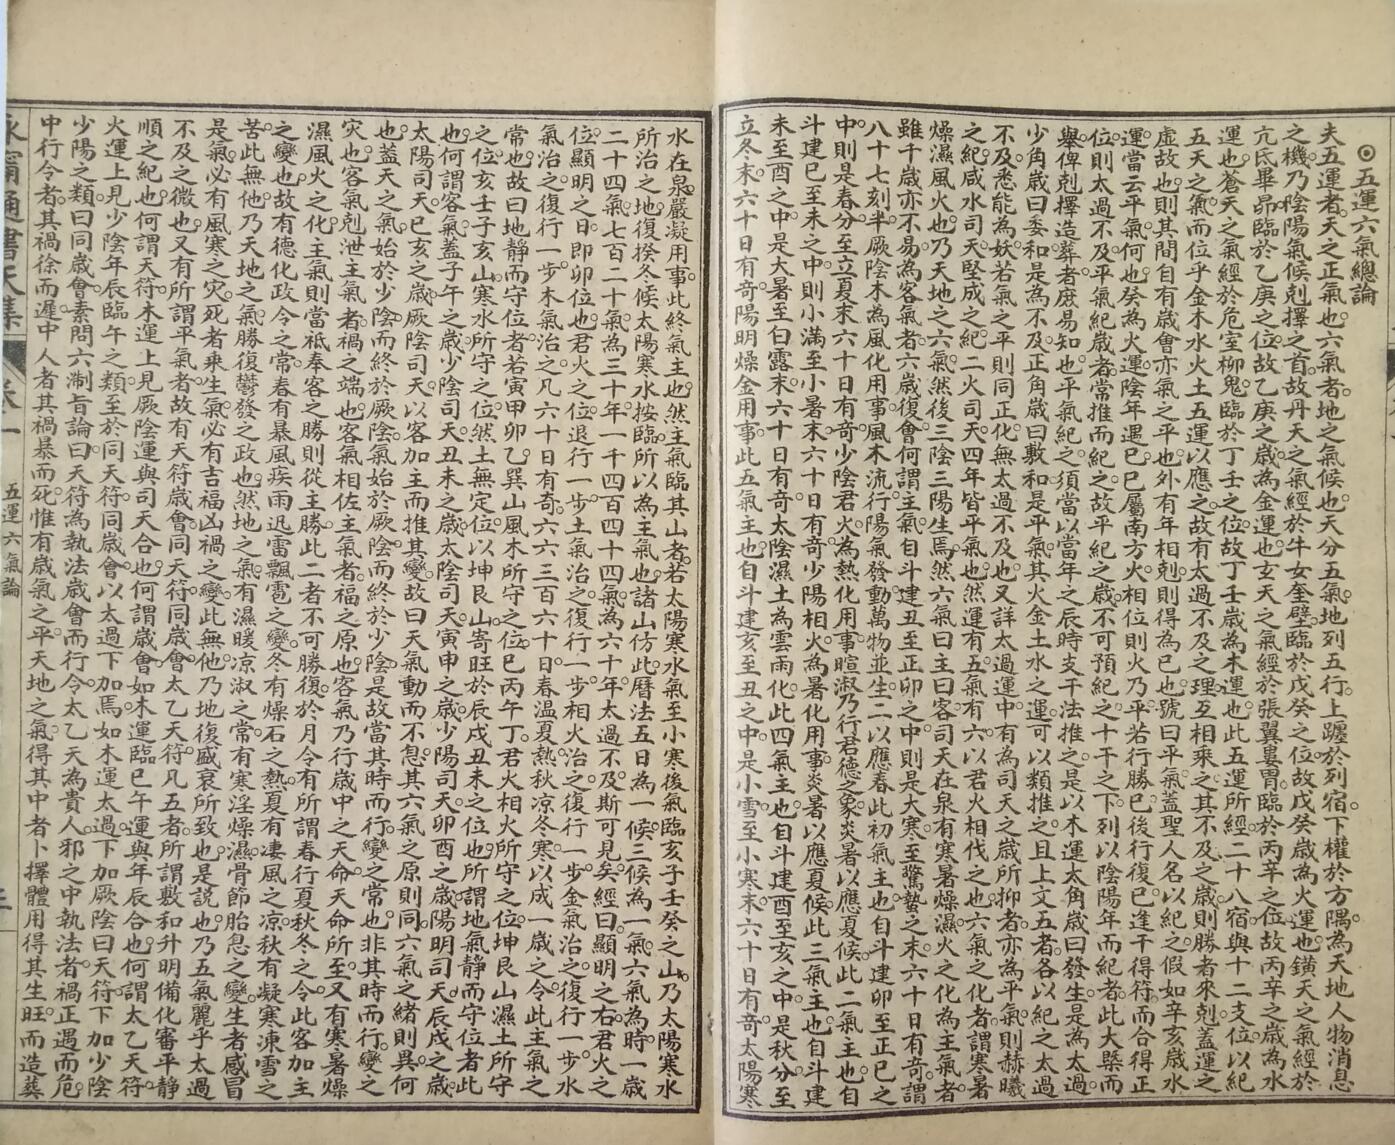 ◉五運六氣總論
夫五運者天之正氣也六氣者地之氣候也天分五氣地列五行上躔於列宿下權於方隅為天地人物消息
之機乃陰陽氣候剋擇之首故丹天之氣經於牛女奎壁臨於戊癸之位故戊癸歲為火運也黅天之氣經於
亢氐畢昴臨於乙庚之位故乙庚之歲為金運也玄天之氣經於張翼婁胃臨於丙辛之位故丙辛之歲為水
運也蒼天之氣經於危室柳鬼臨於丁壬之位故丁壬歲為木運也此五運所經二十八宿與十二支位以紀
五天之氣而位乎金木水火土五運以應之故有太過不及之理互相乘之其不及之歲則勝者來剋蓋運之
虛故也則其間自有歲會亦氣之平也外有年相剋則得為已也號曰平氣蓋聖人名以紀之假如辛亥歲水
運當云平氣何也癸為火運陰年遇巳巳屬南方火相位則火乃平若行勝已後行復已逢干得符而合得正
位則太過不及平氣紀歲者常推而紀之故平紀之歲不可預紀之十干之下列以陰陽年而紀者此大槩而
舉俾剋擇造葬者庶易知也平氣紀之須當以當年之辰時支干法推之是以木運太角歲曰發生是為太過
少角歲曰委和是為不及正角歲曰敷和是平氣其火金土水之運可以類推之且上文五者各以紀之太過
不及悉能為妖若氣之平則同正化無太過不及也又詳太過運中有為司天之歲所抑者亦為平氣則赫曦
之紀咸水司天堅成之紀二火司天四年皆平氣也然運有五氣有六以君火相伐之也六氣之化者謂寒暑
燥濕風火也乃天地之六氣然後三陰三陽生焉然六氣曰主曰客司天在泉有寒暑燥濕火之化為主氣者
雖千歲亦不易為客氣者六歲復會何謂主氣自斗建丑至正卯之中則是大寒至驚蟄之末六十日有奇謂
八十七刻半厥陰木為風化用事風木流行陽氣發動萬物並生二以應春此初氣主也自斗建卯至正巳之
中則是春分至立夏末六十日有奇少陰君火為熱化用事暄淑乃行君德之象炎暑以應夏候此二氣主也自
斗建巳至未之中則小滿至小暑末六十日有奇少陽相火為暑化用事炎暑以應夏候此三氣主也自斗建
未至酉之中是大暑至白露末六十日有奇太陰濕土為雲雨化此四氣主也自斗建酉至亥之中是秋分至
立冬末六十日有奇陽明燥金用事此五氣主也自斗建亥至丑之中是小雪至小寒末六十日有奇太陽寒
水在泉嚴凝用事此終氣主也然主氣臨其山者若太陽寒水氣至小寒後氣臨亥子壬癸之山乃太陽寒水
所治之地復揆冬候太陽寒水按臨所以為主氣也諸山仿此曆法五日為一候三候為一氣六氣為時一歲
二十四氣七百二十氣為三十年一千四百四十四氣為六十年太過不及斯可見矣經曰顯明之右君火之
位顯明之日即卯位也君火之位退行一步土氣治之復行一步相火治之復行一步金氣治之復行一步水
氣治之復行一步木氣治之凡六十日有奇六六三百六十日春溫夏熱秋凉冬寒以成一歲之令此主氣之
常也故曰地靜而守位者若寅甲卯乙巽山風木所守之位巳丙午丁君火相火所守之位坤艮山濕土所守
之位亥壬子亥山寒水所守之位然土無定位以坤艮山寄旺於辰戌丑未之位也所謂地氣靜而守位者此
也何謂客氣蓋子午之歲少陰司天丑未之歲太陰司天寅申之歲少陽司天卯酉之歲陽明司天辰戌之歲
太陽司天巳亥之歲厥陰司天以客加主而推其變故曰天氣動而不息其六氣之原則同六氣之緒則異何
也蓋天之氣始於少陰而終於厥陰氣始於厥陰而終於少陰是故當其時而行變之常也非其時而行變之
災也客氣剋泄主氣者禍之端也客氣相佐主氣者福之原也客氣乃行歲中之天命天命所至又有寒暑燥
濕風火之化主氣則當祗奉客之勝則從主勝此二者不可勝復於月令有所謂春行夏秋冬之令此客加主
之變也故有德化政令之常春有暴風疾雨迅雷飄雹之變冬有燥石之熱夏有凄風之凉秋有凝寒凍雪之
苦此無他乃天地之氣勝復鬱發之政也然地之氣有濕暖凉淑之常有寒淫燥濕骨節胎息之變生者感冒
是氣必有風寒之灾死者乘生氣必有吉福凶禍之變此無他乃地復盛衰所致也是說也乃五氣麗乎太過
不及之微也又有所謂平氣者故有天符歲會同天符同歲會太乙天符凡五者所謂敷和升明備化審平靜
順之紀也何謂天符木運上見厥陰運與司天合也何謂歲會如木運臨巳午運與年辰合也何謂太乙天符
火運上見少陰年辰臨午之類至於同天符同歲會以太過下加焉如木運太過下加厥陰曰天符下加少陰
少陽之類曰同歲會素問六㣲旨論曰天符為執法歲會而行令太乙天為貴人邪之中執法者禍正遇而危
中行令者其禍徐而遲中人者其禍暴而死惟有歲氣之平天地之氣得其中者卜擇體用得其生旺而造葬
永甯通書天集 卷一 五運六氣論 三